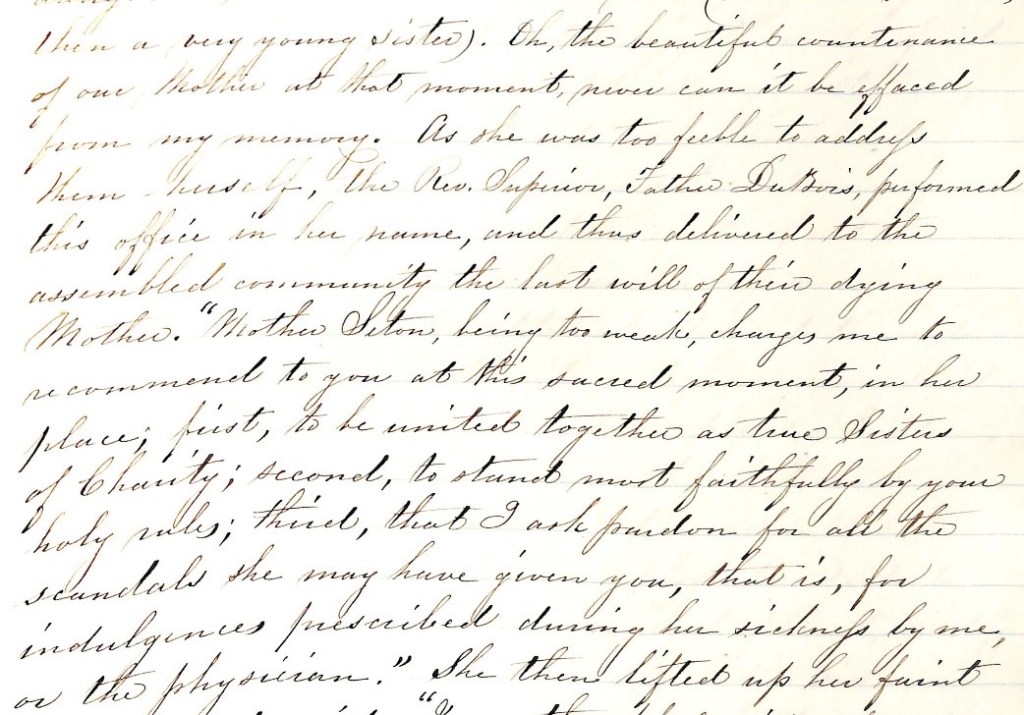 then a very young sister). Oh, the beautiful countenance
of our Mother at that moment, never can it be effaced
from my memory. As she was too feeble to address
them herself, the Rev. Superior, Father DuBois, performed
this office in her name, and thus delivered to the
assembled community the last will of their dying
Mother. "Mother Seton, being too weak, charges me to
recommend to you at this sacred moment, in her
place; first, to be united together as true Sisters
of Charity; second, to stand most faithfully by your
holy rules; third, that I ask pardon for all the
scandals she may have given you, that is, for
indulgences prescribed during her sickness by me,
or the physician." She then lifted up her faint